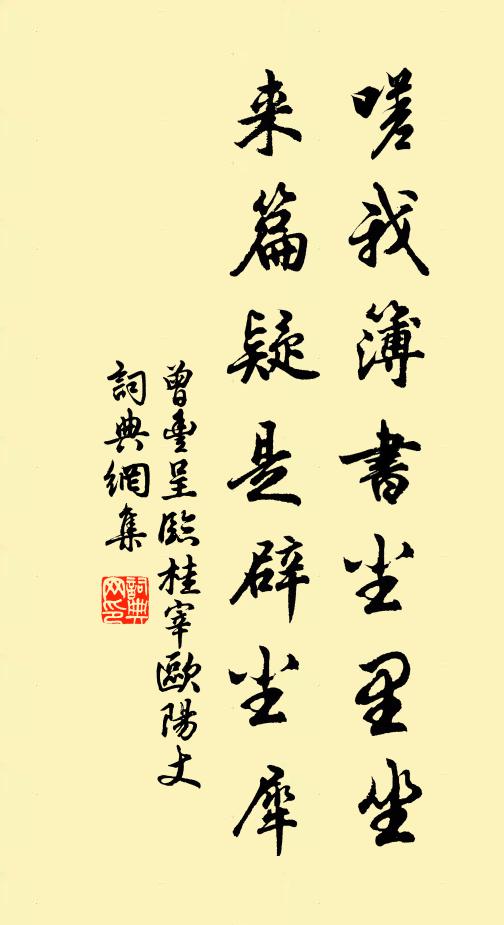 嗟我簿書尘里坐
来篇疑是辟尘犀
曾豐呈臨桂宰歐陽丈
詞典網集
詞典网印